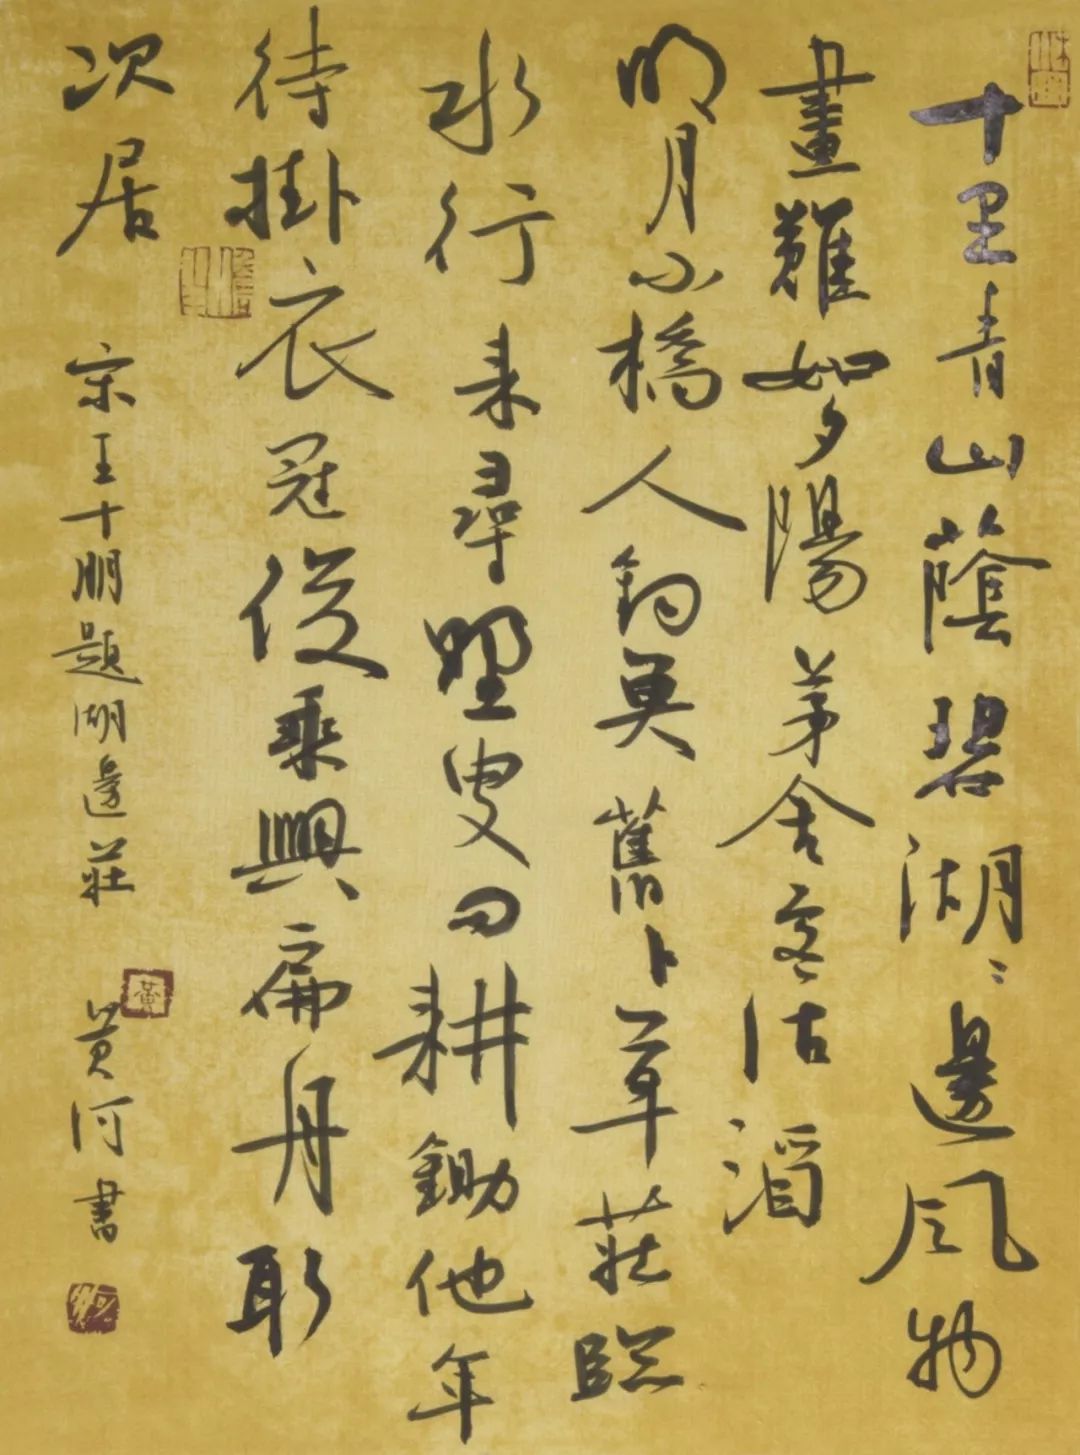 十里青山蔭碧湖〻邊風物
畫難如夕陽茅舍客沽酒
明月小橋人釣魚舊卜草莊臨
水行来尋野叟問耕鋤他年
待掛衣冠後乘興扁舟取
次居 宋王十朋題湖邊莊 黄河書
黃